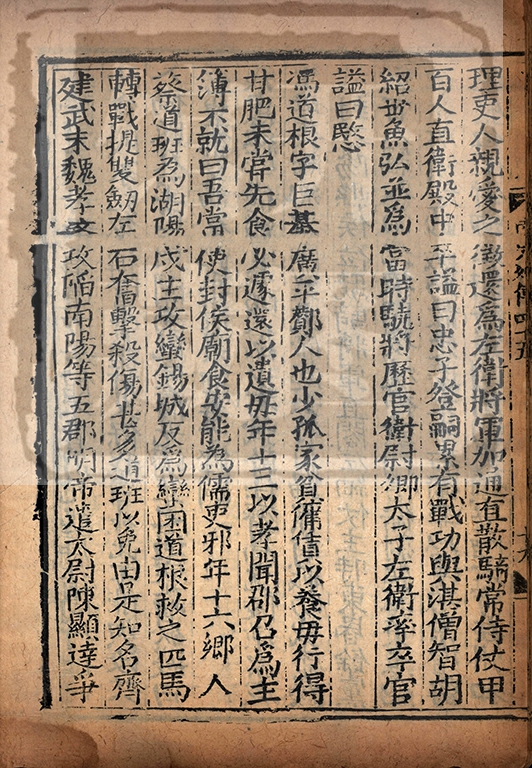 理吏人親愛之徵還爲左衛將軍加通直散騎常侍仗甲
百人直衛殿中卒謚曰忠子登嗣累有戰功與湛僧智胡
紹世魚弘並為當時驍將歷官衛尉卿太子左衛率卒官
謚曰愍
馮道根字巨基廣平酇人也少孤家貧傭債以養母行得
甘肥未甞先食必遽還以遺母年十三以孝聞郡召爲主
簿不就曰吾當使封侯廟食安能為儒吏邪年十六鄉人
蔡道班爲湖陽戍主攻蠻錫城反爲蠻困道根救之匹馬
轉戰提雙劒左右奮擊殺傷甚多道班以免由是知名齊
建武末魏孝文攻䧟南陽等五郡明帝遣太尉陳顯達爭